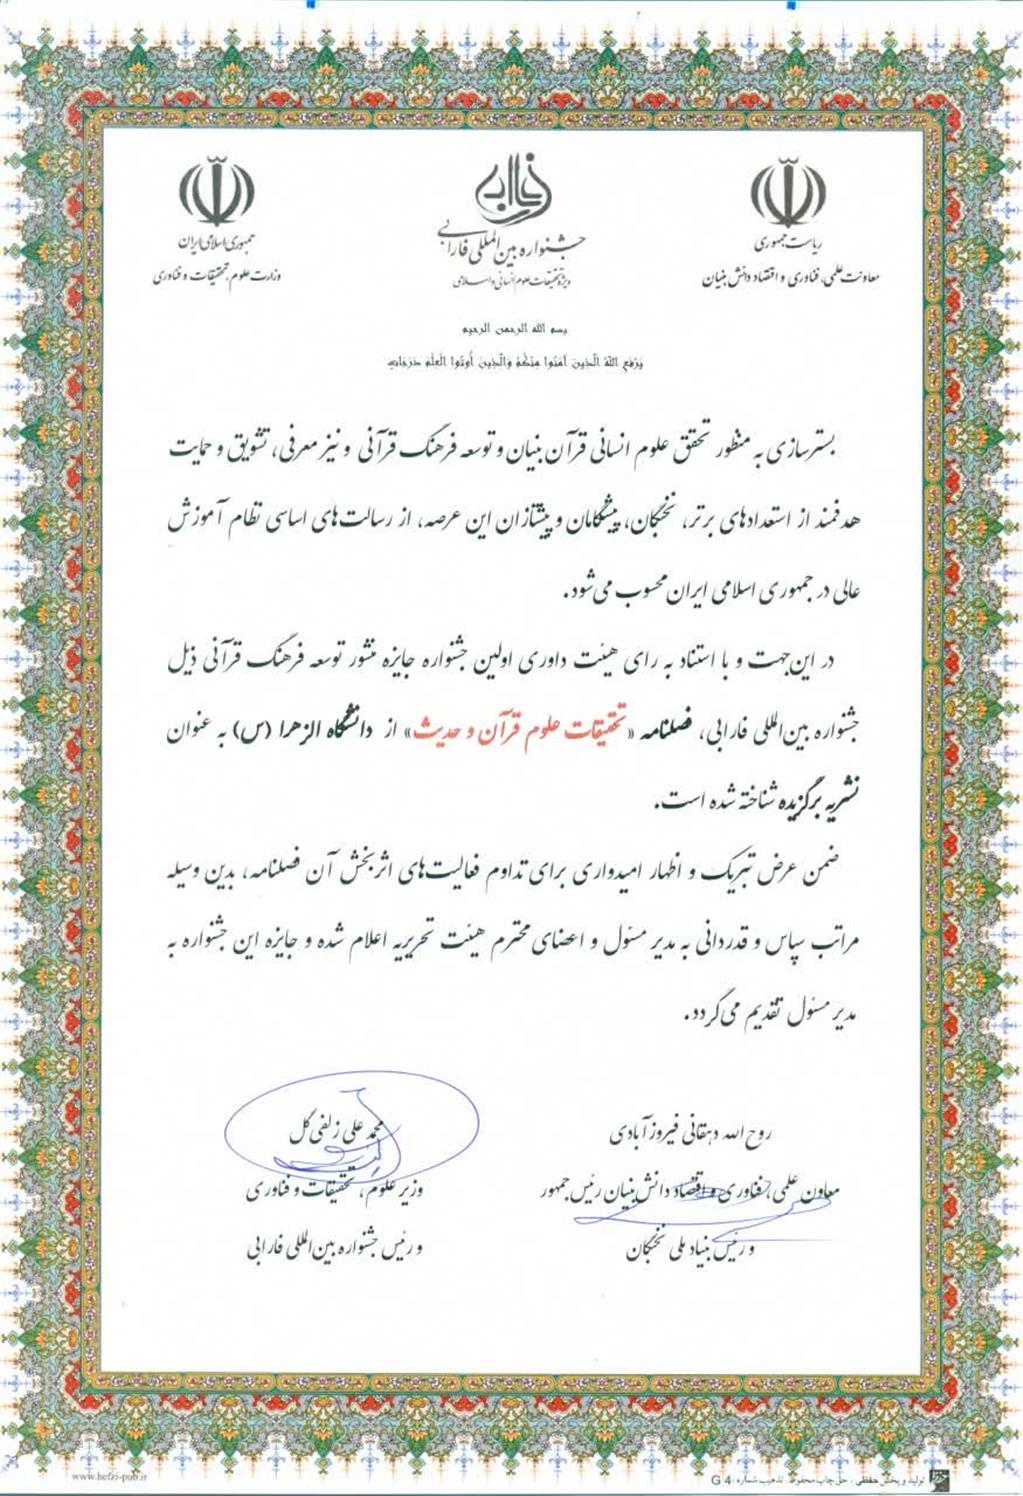 ریاست جمهوری
معاونت علمی، فناوری و اقتصاد دانش بنیان
فارابی
جشنواره بین‌المللی فارابی
ویژه تحقیقات علوم انسانی و اسلامی
جمهوری اسلامی ایران
وزارت علوم، تحقیقات و فناوری
بسم الله الرحمن الرحیم
يَرْفَعِ اللَّهُ الَّذِينَ آمَنُوا مِنْكُمْ وَالَّذِينَ أُوتُوا الْعِلْمَ دَرَجَاتٍ
بسترسازی به منظور تحقق علوم انسانی قرآن بنیان و توسعه فرهنگ قرآنی و نیز معرفی، تشویق و حمایت
هدفمند از استعدادهای برتر، نخبگان، پیشگامان و پیشتازان این عرصه، از رسالت‌های اساسی نظام آموزش
عالی در جمهوری اسلامی ایران محسوب می‌شود.
در این‌جهت و با استناد به رای هیئت داوری اولین جشنواره جایزه منشور توسعه فرهنگ قرآنی ذیل
جشنواره بین‌المللی فارابی، فصلنامه «تحقیقات علوم قرآن و حدیث» از دانشگاه الزهرا (س) به عنوان
نشریه برگزیده شناخته شده است.
ضمن عرض تبریک و اظهار امیدواری برای تداوم فعالیت‌های اثربخش آن فصلنامه، بدین وسیله
مراتب سپاس و قدردانی به مدیر مسئول و اعضای محترم هیئت تحریریه اعلام شده و جایزه این جشنواره به
مدیر مسئول تقدیم می‌گردد.
روح الله دهقانی فیروزآبادی
معاون علمی، فناوری و اقتصاد دانش بنیان رئیس جمهور
و رئیس بنیاد ملی نخبگان
محمد علی زلفی گل
وزیر علوم، تحقیقات و فناوری
و رئیس جشنواره بین‌المللی فارابی
www.hefzi-pub.ir
تولید و پخش حفظی - حق چاپ محفوظ. تذهیب شماره: G 4